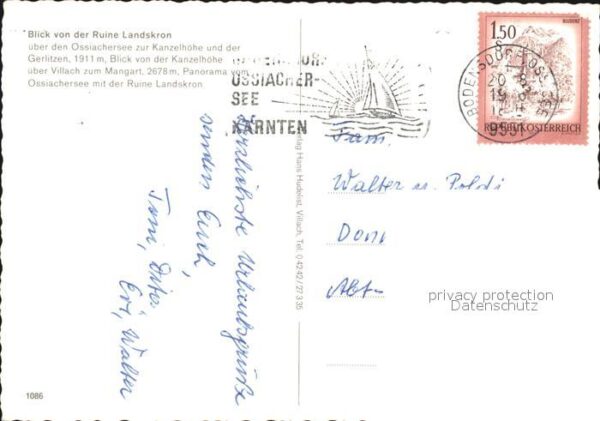 Blick von der Ruine Landskron
über den Ossiachersee zur Kanzelhöhe und der
Gerlitzen, 1911 m, Blick von der Kanzelhöhe
über Villach zum Mangart, 2678 m, Panorama vom
Ossiachersee mit der Ruine Landskron
OSSIACHER-
SEE
KÄRNTEN
1.50
BLUDENZ
REPUBLIK ÖSTERREICH
BODENSDORF
9551
Verlag Hans Hudelist, Villach, Tel. 04242/27335
Herzlichste Urlaubsgrüße
senden Euch,
Toni, Dita
Eri, Walter
Fam.
Walter u. Poldi
Dom
privacy protection
Datenschutz
1086